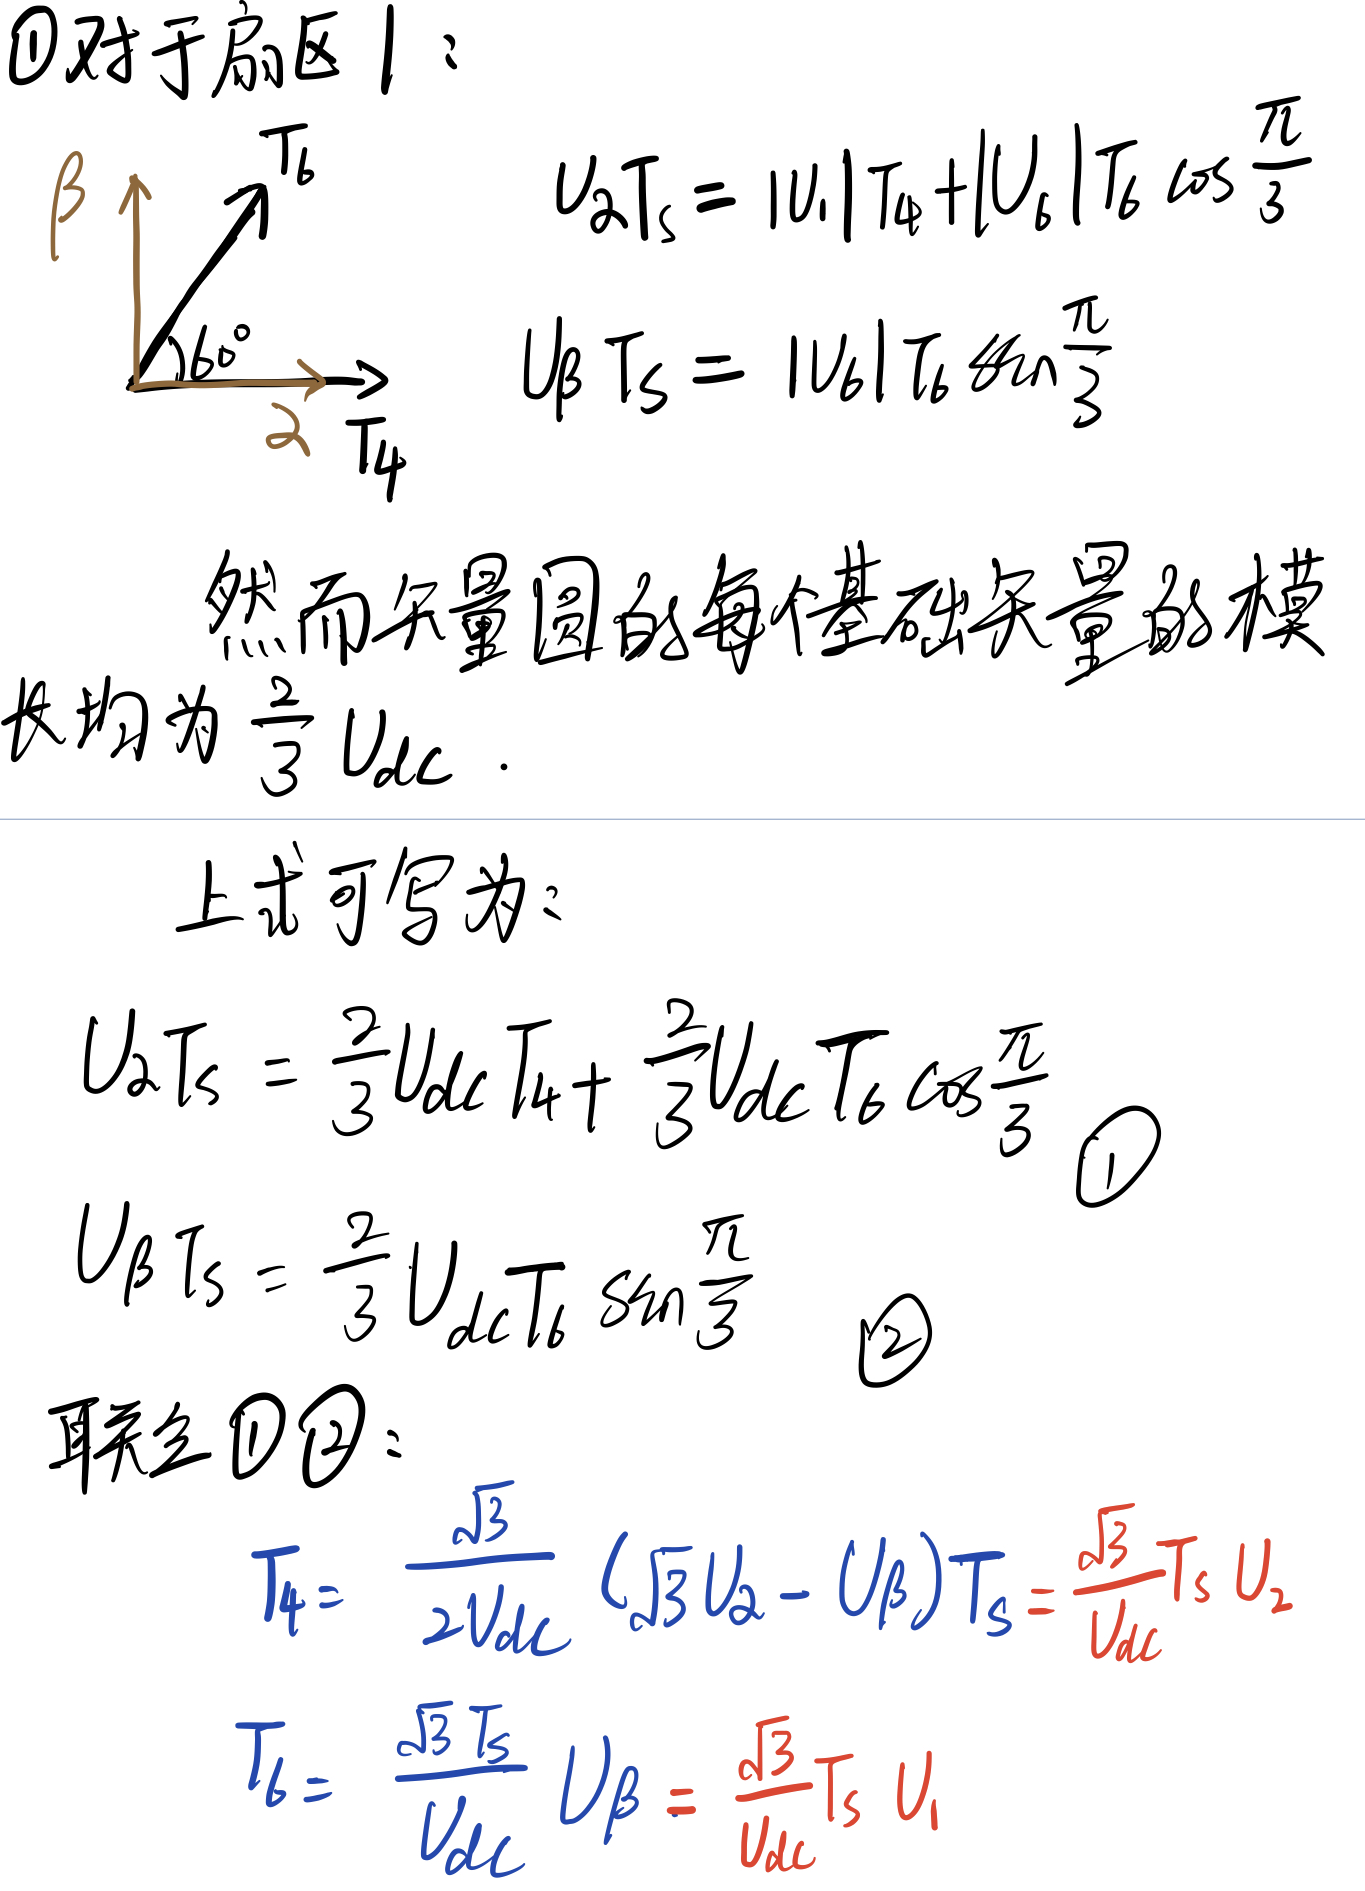 ①对于扇区1：
β
T₆
60°
α
T₄
UαTs = |U₁|T₄+|U₆|T₆ cos π/3
Uβ Ts = |U₆|T₆ sin π/3
然而矢量圆的每个基础矢量的模
长均为 2/3 Udc .
上式可写为：
UαTs = 2/3 Udc T₄ + 2/3 Udc T₆ cos π/3 ①
Uβ Ts = 2/3 Udc T₆ sin π/3 ②
联立①②：
T₄ = √3/2Udc (√3Uα - Uβ)Ts = √3/Udc Ts U₂
T₆ = √3 Ts/Udc Uβ = √3/Udc Ts U₁